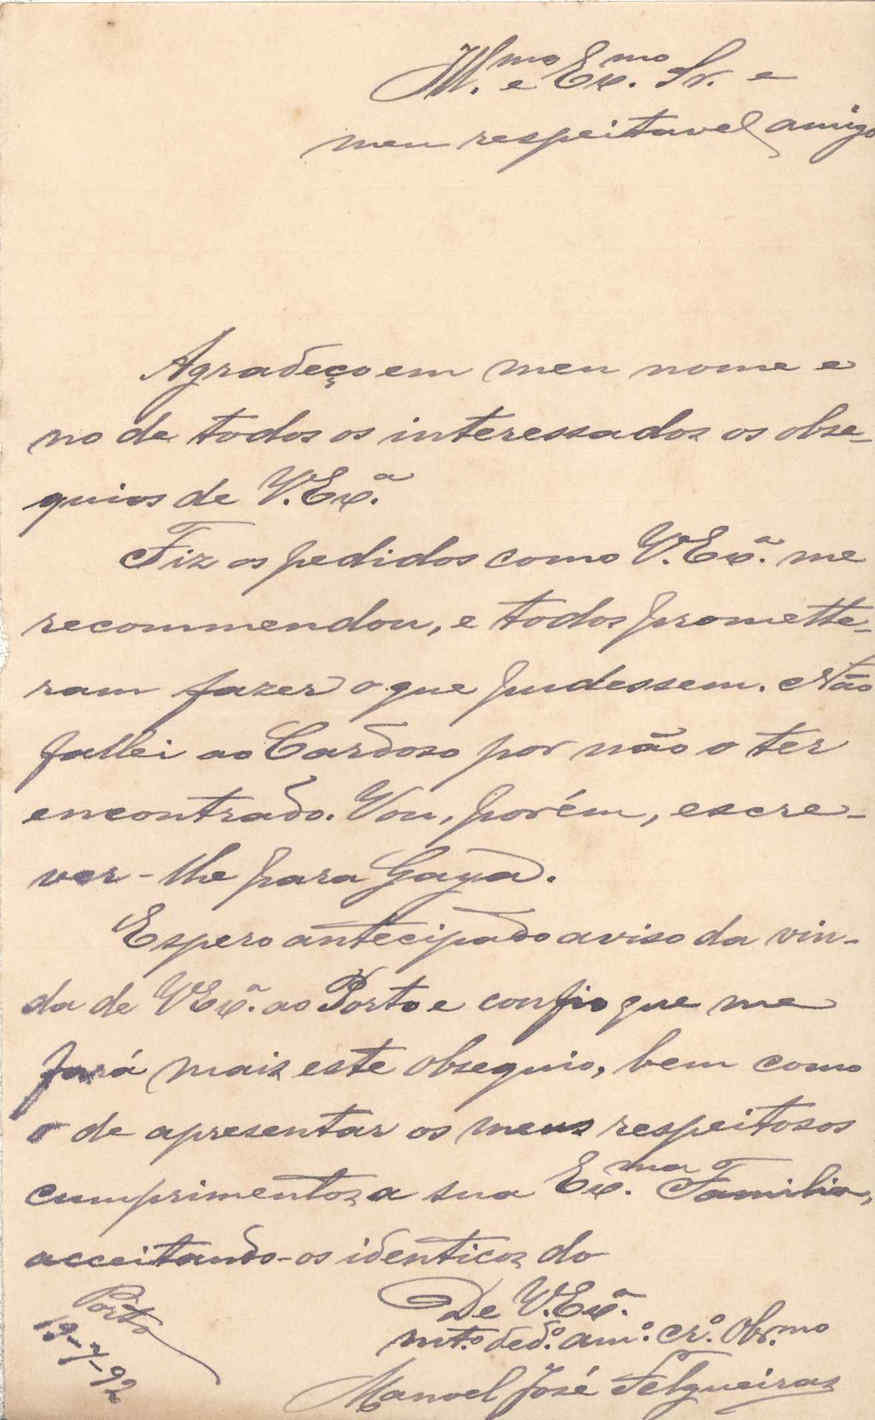 Ill.mo e Ex.mo Sr. e
meu respeitavel amigo
Agradeço em meu nome e
no de todos os interessados os obse-
quios de V. Ex.ª
Fiz os pedidos como V. Ex.ª me
recommendou, e todos promette-
ram fazer o que pudessem. Não
fallei ao Cardoso por não o ter
encontrado. Vou, porém, escre-
ver-lhe para Gaya.
Espero antecipado aviso da vin-
da de V Ex.ª ao Porto e confio que me
fará mais este obsequio, bem como
o de apresentar os meus respeitosos
cumprimentos a sua Ex.ma Familia,
acceitando-os identicos do
De V. Ex.ª
mt.º ded.º am.º cr.º Obr.mo
Manoel José Felgueiras
Porto
13-7-92